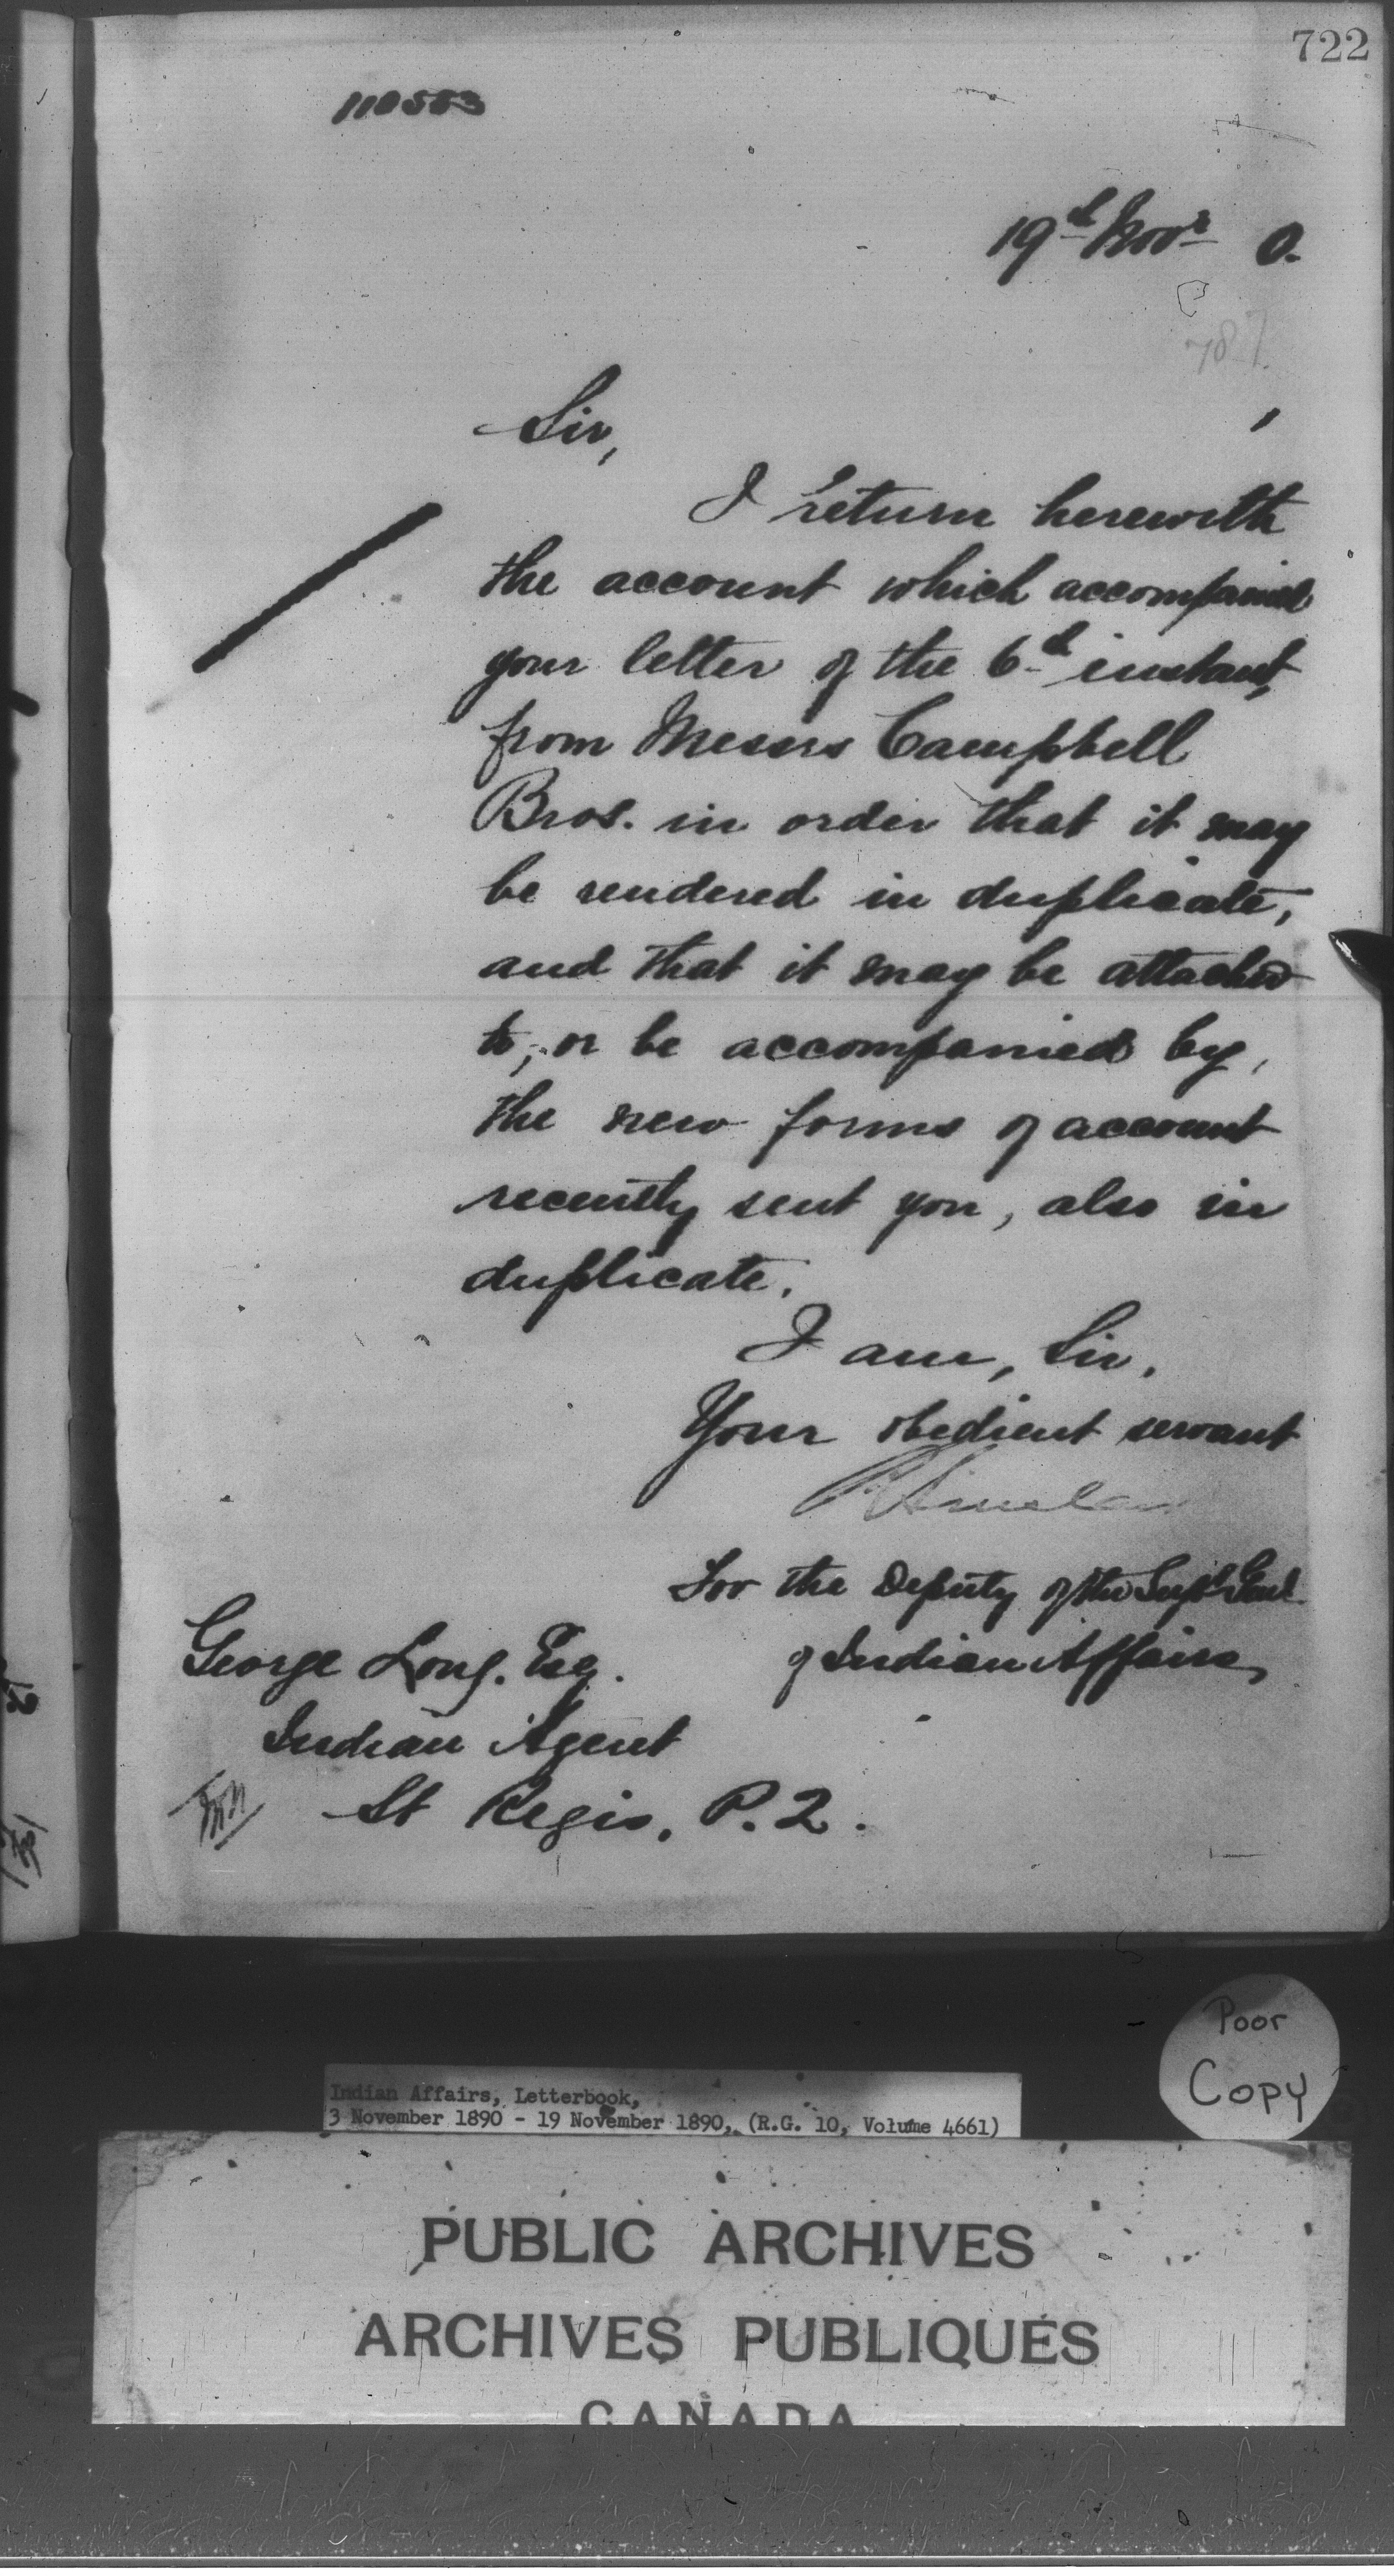 722
110553
19th Novr 0.
787.
Sir,
I return herewith
the account which accompanied
your letter of the 6th instant,
from Messrs Campbell
Bros. in order that it may
be rendered in duplicate,
and that it may be attached
to, or be accompanied by,
the new forms of account
recently sent you, also in
duplicate.
I am, Sir,
Your obedient servant
For the Deputy of the Supt Genl
of Indian Affairs,
George Long, Esq.
Indian Agent
St Regis, P.Q.
Poor
Copy
Indian Affairs, Letterbook,
3 November 1890 - 19 November 1890, (R.G. 10, Volume 4661)
PUBLIC ARCHIVES
ARCHIVES PUBLIQUES
CANADA